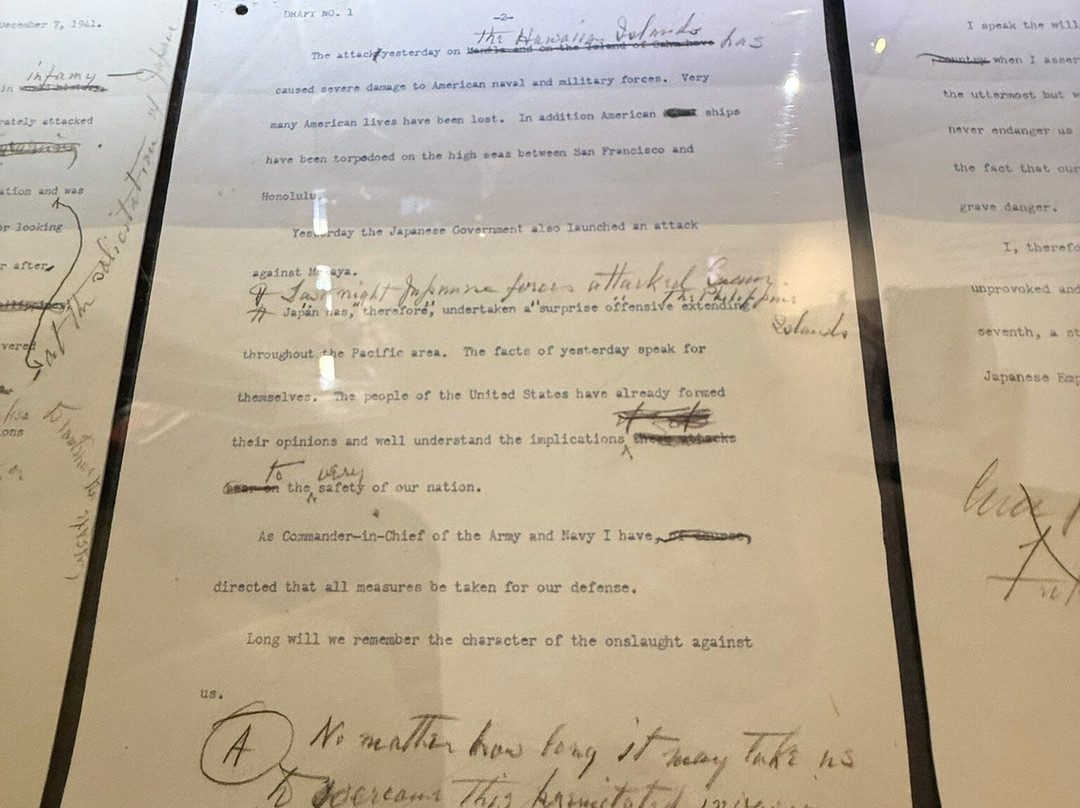 December 7, 1941.
infamy
in world history
rately attacked
ation and was
or looking
r after
vered
ons
at the solicitation of Japan
DRAFT NO. 1
-2-
the Hawaiian Islands has
The attack yesterday on Manila and on the island of Oahu have
caused severe damage to American naval and military forces. Very
many American lives have been lost. In addition American ships
have been torpedoed on the high seas between San Francisco and
Honolulu.
Yesterday the Japanese Government also launched an attack
against Malaya.
Last night Japanese forces attacked Guam
The Philippine
Islands
Japan has, therefore, undertaken a surprise offensive extending
throughout the Pacific area. The facts of yesterday speak for
themselves. The people of the United States have already formed
their opinions and well understand the implications these attacks
to very
bear on the safety of our nation.
As Commander-in-Chief of the Army and Navy I have, of course,
directed that all measures be taken for our defense.
Long will we remember the character of the onslaught against
us.
A No matter how long it may take us
to overcome this premeditated invasion
I speak the will
country when I asser
the uttermost but w
never endanger us
the fact that our
grave danger.
I, therefo
unprovoked and
seventh, a st
Japanese Emp